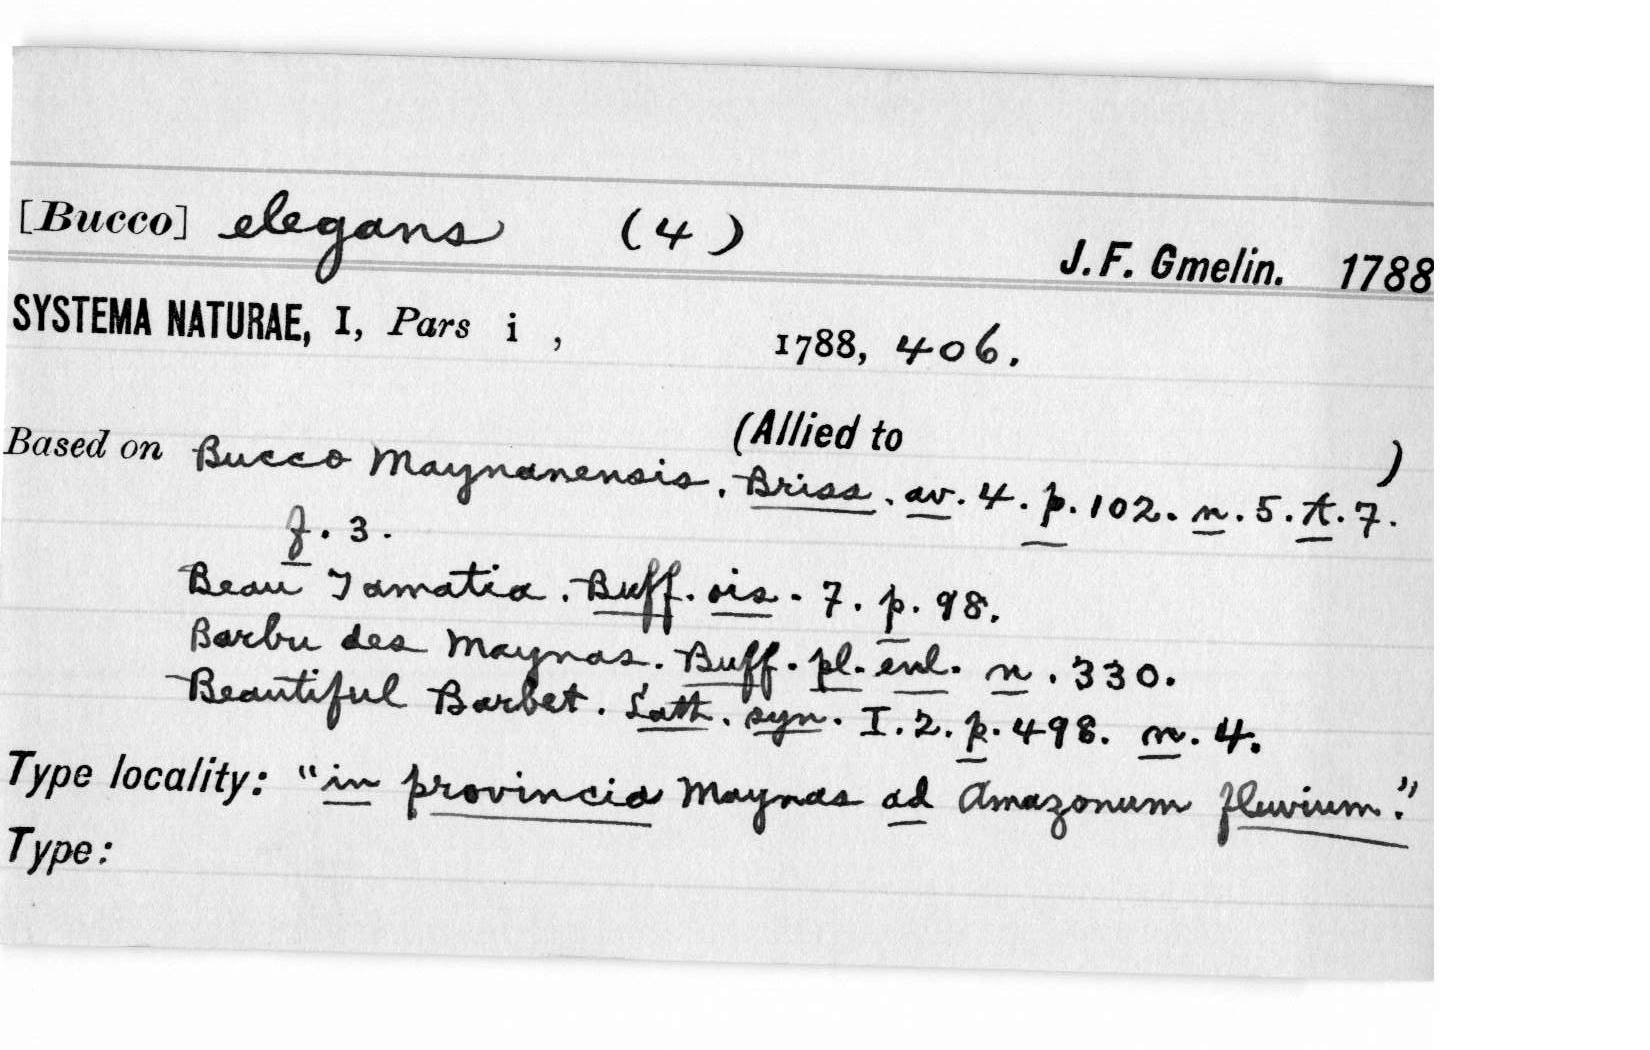 [Bucco] elegans (4)
J. F. Gmelin. 1788
SYSTEMA NATURAE, I, Pars i , 1788, 406.
(Allied to )
Based on Bucco Maynanensis. Briss. av. 4. p. 102. n. 5. t. 7.
f. 3.
Beau Tamatia. Buff. ois. 7. p. 98.
Barbu des Maynas. Buff. pl. enl. n. 330.
Beautiful Barbet. Lath. syn. I. 2. p. 498. n. 4.
Type locality: "in provincia Maynas ad Amazonum fluvium."
Type: